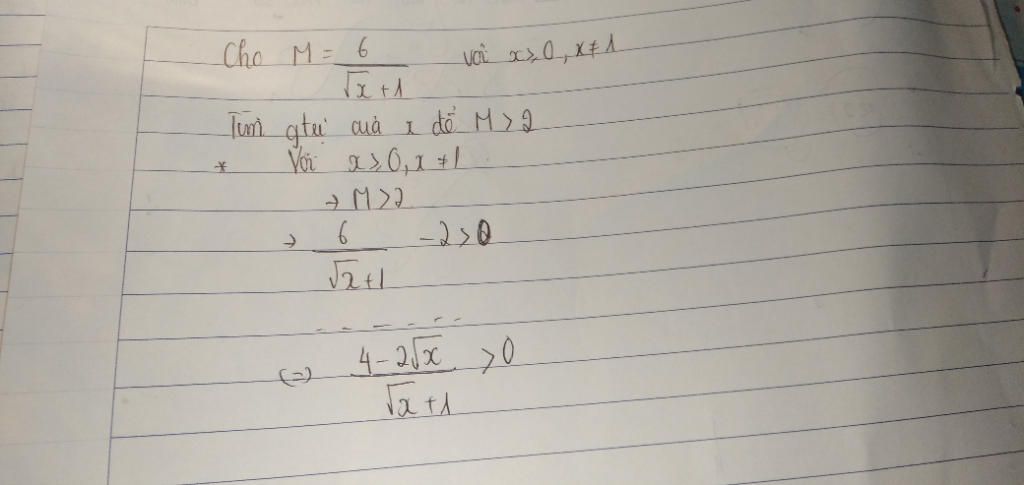 Cho M = 6/(√x + 1) với x ≥ 0, x ≠ 1
Tìm gtrị của x để M > 2
* Với x ≥ 0, x ≠ 1
→ M > 2
→ 6/(√x + 1) - 2 > 0
- - - - - -
(=) (4 - 2√x)/(√x + 1) > 0